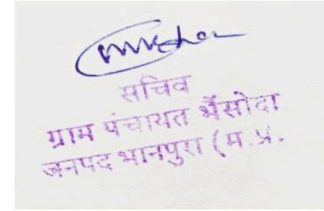 सचिव
ग्राम पंचायत भैंसोदा
जनपद भानपुरा (म.प्र.